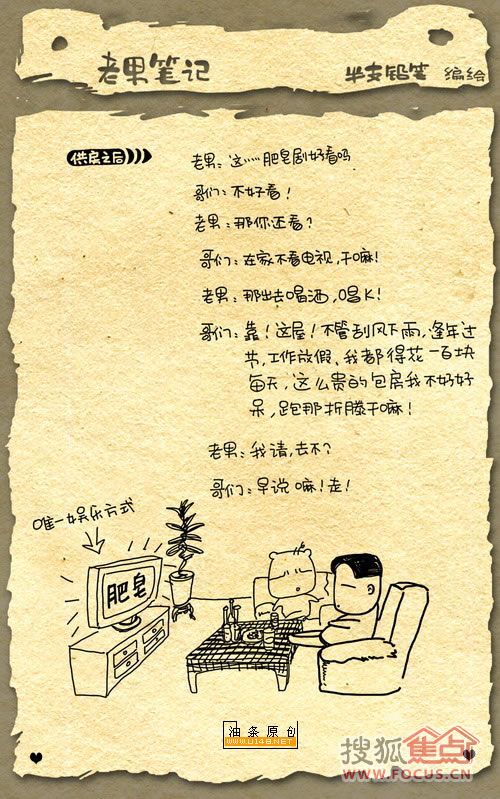 老果笔记
半支铅笔 编绘
供房之后
老果：这……肥皂剧好看吗
哥们：不好看！
老果：那你还看？
哥们：在家不看电视，干嘛！
老果：那出去喝酒，唱K！
哥们：靠！这屋！不管刮风下雨，逢年过
节，工作放假、我都得花一百块
每天，这么贵的包房我不好好
呆，跑那折腾干嘛！
老果：我请，去不？
哥们：早说嘛！走！
唯一娱乐方式
肥皂
油条原创
WWW.U148.NET
搜狐焦点
WWW.FOCUS.CN